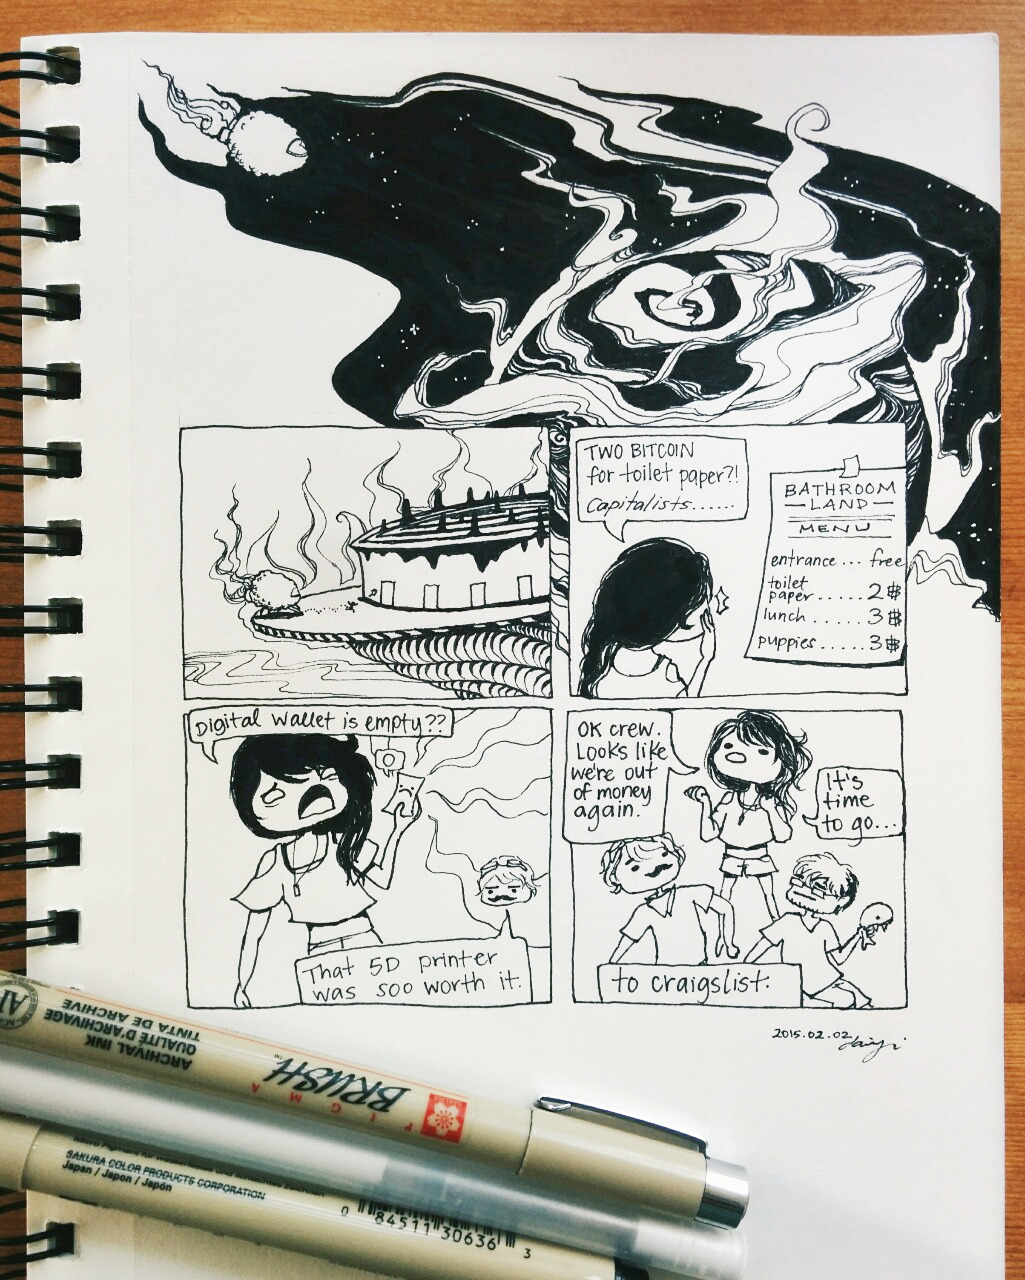 TWO BITCOIN
for toilet paper?!
Capitalists......
BATHROOM
LAND
MENU
entrance... free
toilet
paper..... 2฿
lunch...... 3฿
puppies..... 3฿
Digital wallet is empty??
That 5D printer
was soo worth it.
OK crew.
Looks like
we're out
of money
again.
It's
time
to go...
to craigslist.
2015.02.02
ARCHIVAL INK
QUALITÉ D'ARCHIVAGE
TINTA DE ARCHIVE
PIGMA
BRUSH™
SAKURA COLOR PRODUCTS CORPORATION
Japan / Japon / Japón
0 84511 30636 3